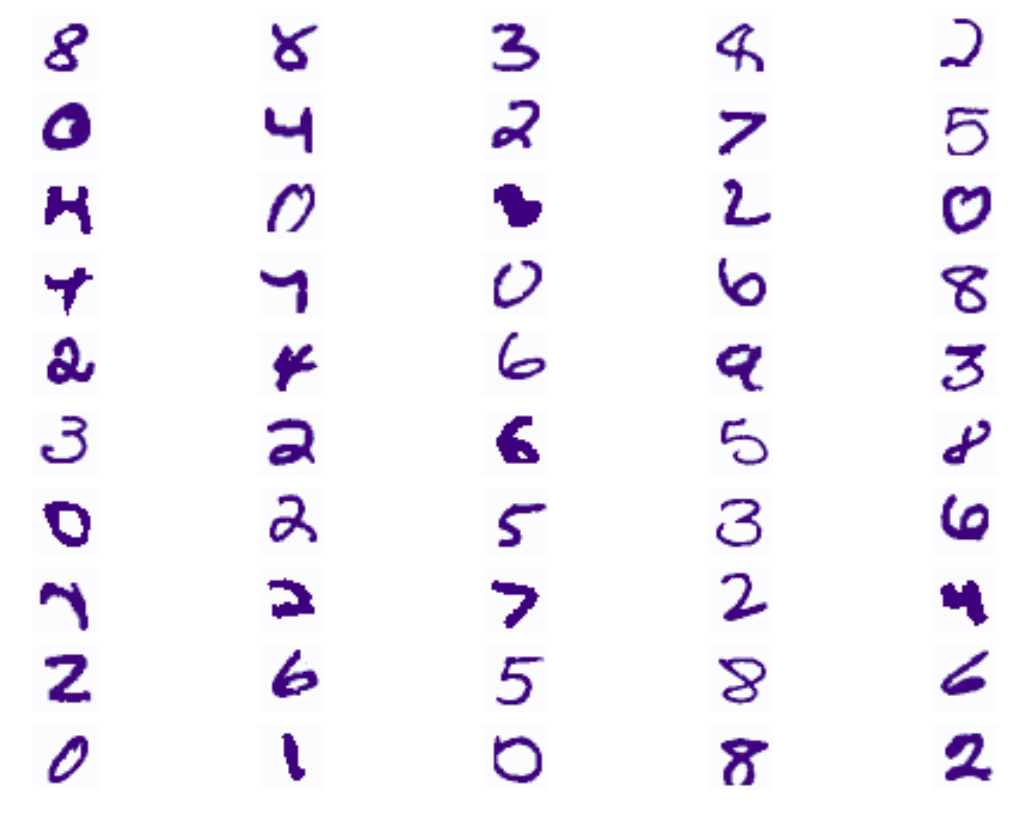 8 8 3 4 2
0 4 2 7 5
4 0 2 0
7 0 6 8
2 4 6 9 3
3 2 6 5 8
0 2 5 3 6
7 2 7 2 4
2 6 5 8 6
0 1 0 8 2